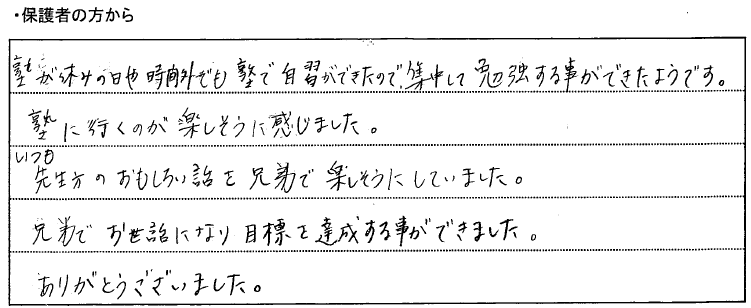 ・保護者の方から
塾が休みの日や時間外でも塾で自習ができたので、集中して勉強する事ができたようです。
塾に行くのが楽しそうに感じました。
いつも
先生方のおもしろい話を兄弟で楽しそうにしていました。
兄弟でお世話になり目標を達成する事ができました。
ありがとうございました。